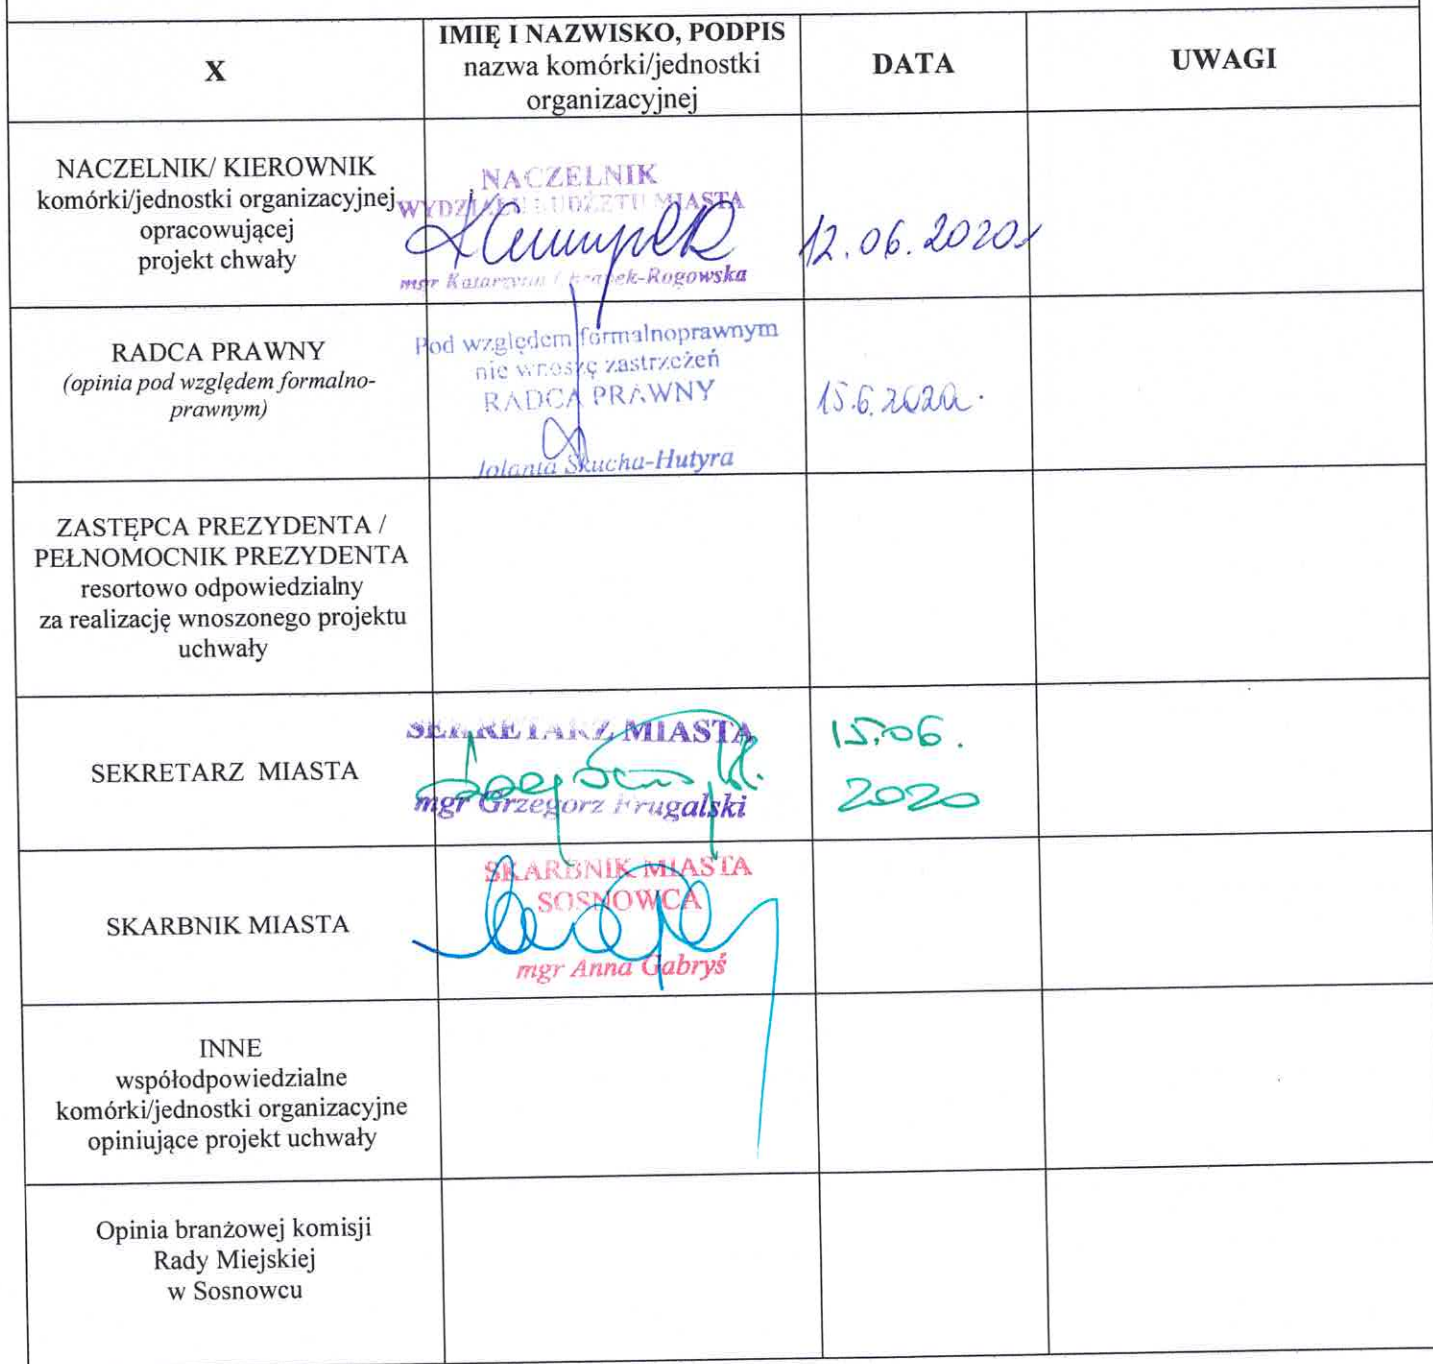 X
IMIĘ I NAZWISKO, PODPIS
nazwa komórki/jednostki
organizacyjnej
DATA
UWAGI
NACZELNIK/ KIEROWNIK
komórki/jednostki organizacyjnej
opracowującej
projekt chwały
NACZELNIK
WYDZIAŁU BUDŻETU MIASTA
mgr Katarzyna -Rogowska
12.06.2020
RADCA PRAWNY
(opinia pod względem formalno-
prawnym)
Pod względem formalnoprawnym
nie wnoszę zastrzeżeń
RADCA PRAWNY
Jolanta Skucha-Hutyra
15.6.2020.
ZASTĘPCA PREZYDENTA /
PEŁNOMOCNIK PREZYDENTA
resortowo odpowiedzialny
za realizację wnoszonego projektu
uchwały
SEKRETARZ MIASTA
SEKRETARZ MIASTA
mgr Grzegorz Frugalski
15.06.
2020
SKARBNIK MIASTA
SKARBNIK MIASTA
SOSNOWCA
mgr Anna Gabryś
INNE
współodpowiedzialne
komórki/jednostki organizacyjne
opiniujące projekt uchwały
Opinia branżowej komisji
Rady Miejskiej
w Sosnowcu